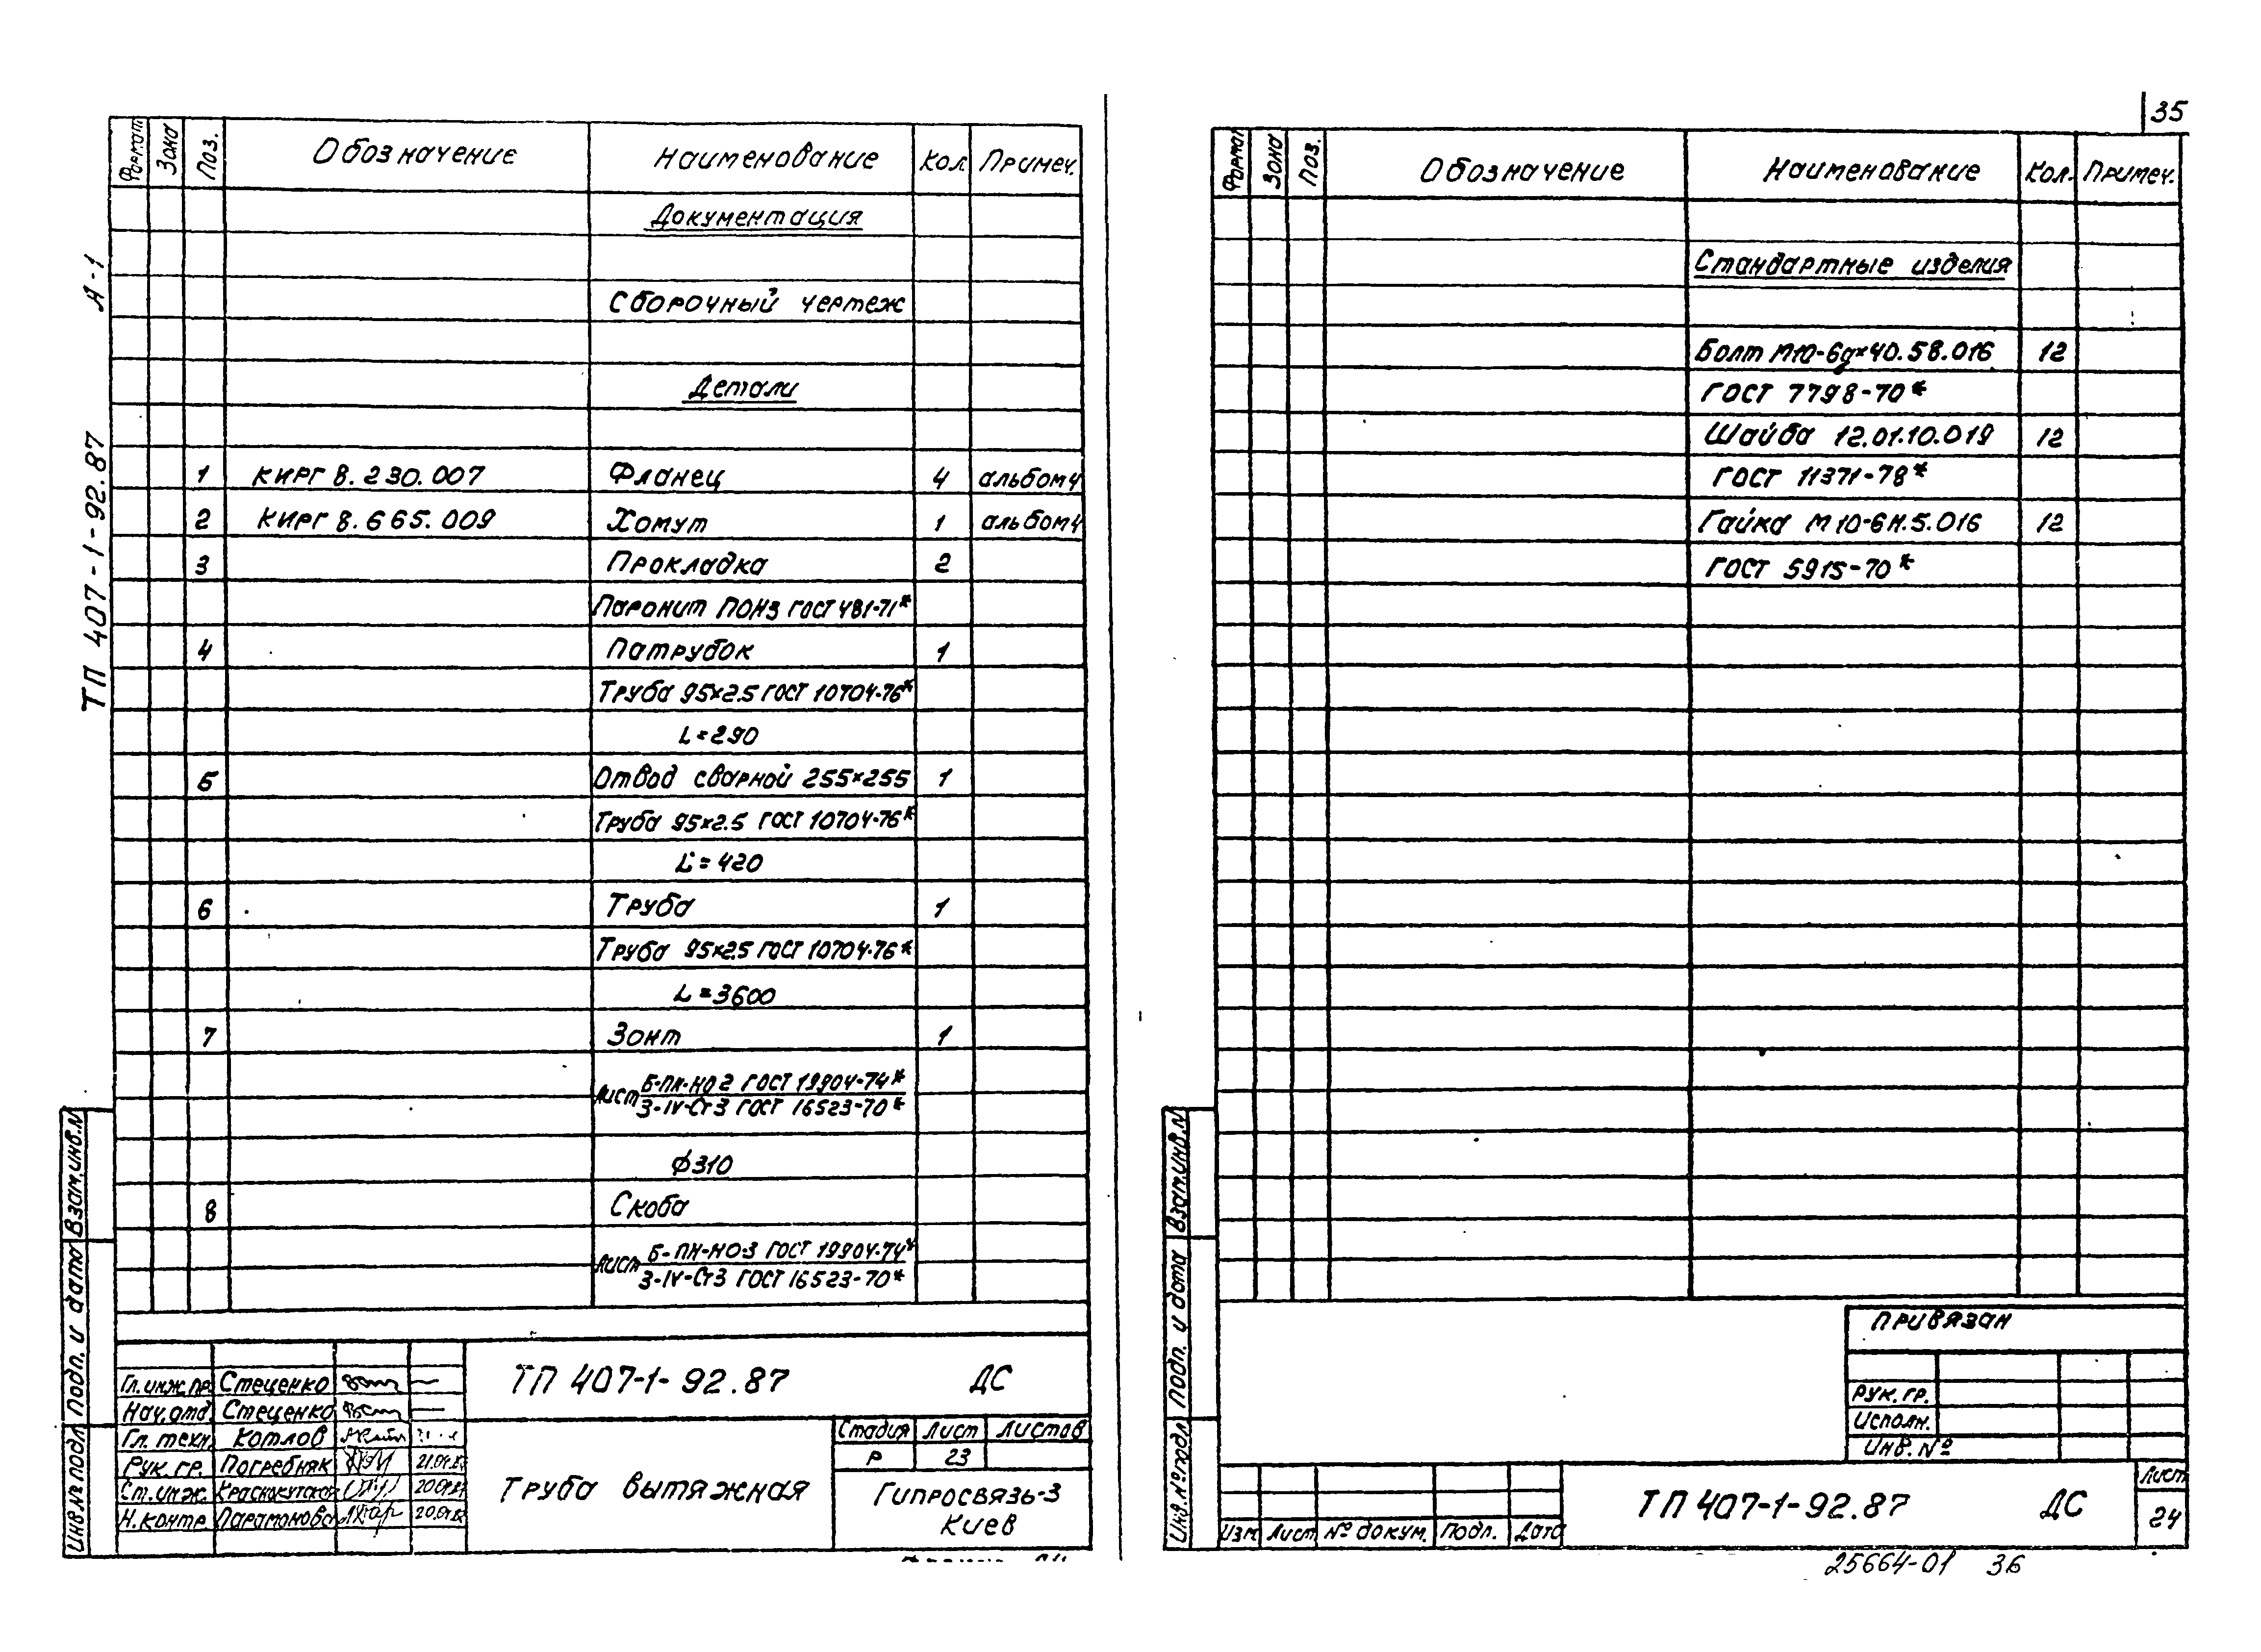 35
ТП 407-1-92.87 А-1
Формат Зона Поз. Обозначение Наименование Кол. Примеч.
Документация
Сборочный чертеж
Детали
1 КИРГ 8.230.007 Фланец 4 альбом 4
2 КИРГ 8.665.009 Хомут 1 альбом 4
3 Прокладка 2
Паронит ПОН3 ГОСТ 481-71*
4 Патрубок 1
Труба 95×2.5 ГОСТ 10704-76*
L=290
5 Отвод сварной 255×255 1
Труба 95×2.5 ГОСТ 10704-76*
L=420
6 Труба 1
Труба 95×2.5 ГОСТ 10704-76*
L=3600
7 Зонт 1
Лист Б-ПН-НО 2 ГОСТ 19904-74*
3-IV-Ст3 ГОСТ 16523-70*
ф310
8 Скоба
Лист Б-ПН-НО-3 ГОСТ 19904-74*
3-IV-Ст3 ГОСТ 16523-70*
Взам.инв.N
Подп. и дата
Инв.№ подл
Гл.инж.пр. Стеценко
Нач.отд. Стеценко
Гл. техн. Котлов
Рук. гр. Погребняк
Ст.инж. Краснокутская
Н.контр. Парамонова
ТП 407-1-92.87 ДС
Труба вытяжная
Стадия Лист Листов
Р 23
Гипросвязь-3
Киев
Формат Зона Поз. Обозначение Наименование Кол. Примеч.
Стандартные изделия
Болт М10-6g×40.58.016 12
ГОСТ 7798-70*
Шайба 12.01.10.019 12
ГОСТ 11371-78*
Гайка М10-6Н.5.016 12
ГОСТ 5915-70*
Взам.инв.N
Подп. и дата
Инв.№ подл
Привязан
Рук. гр.
Исполн.
Инв. №
Изм Лист № докум. Подп. Дата
ТП 407-1-92.87 ДС
Лист
24
25664-01 36